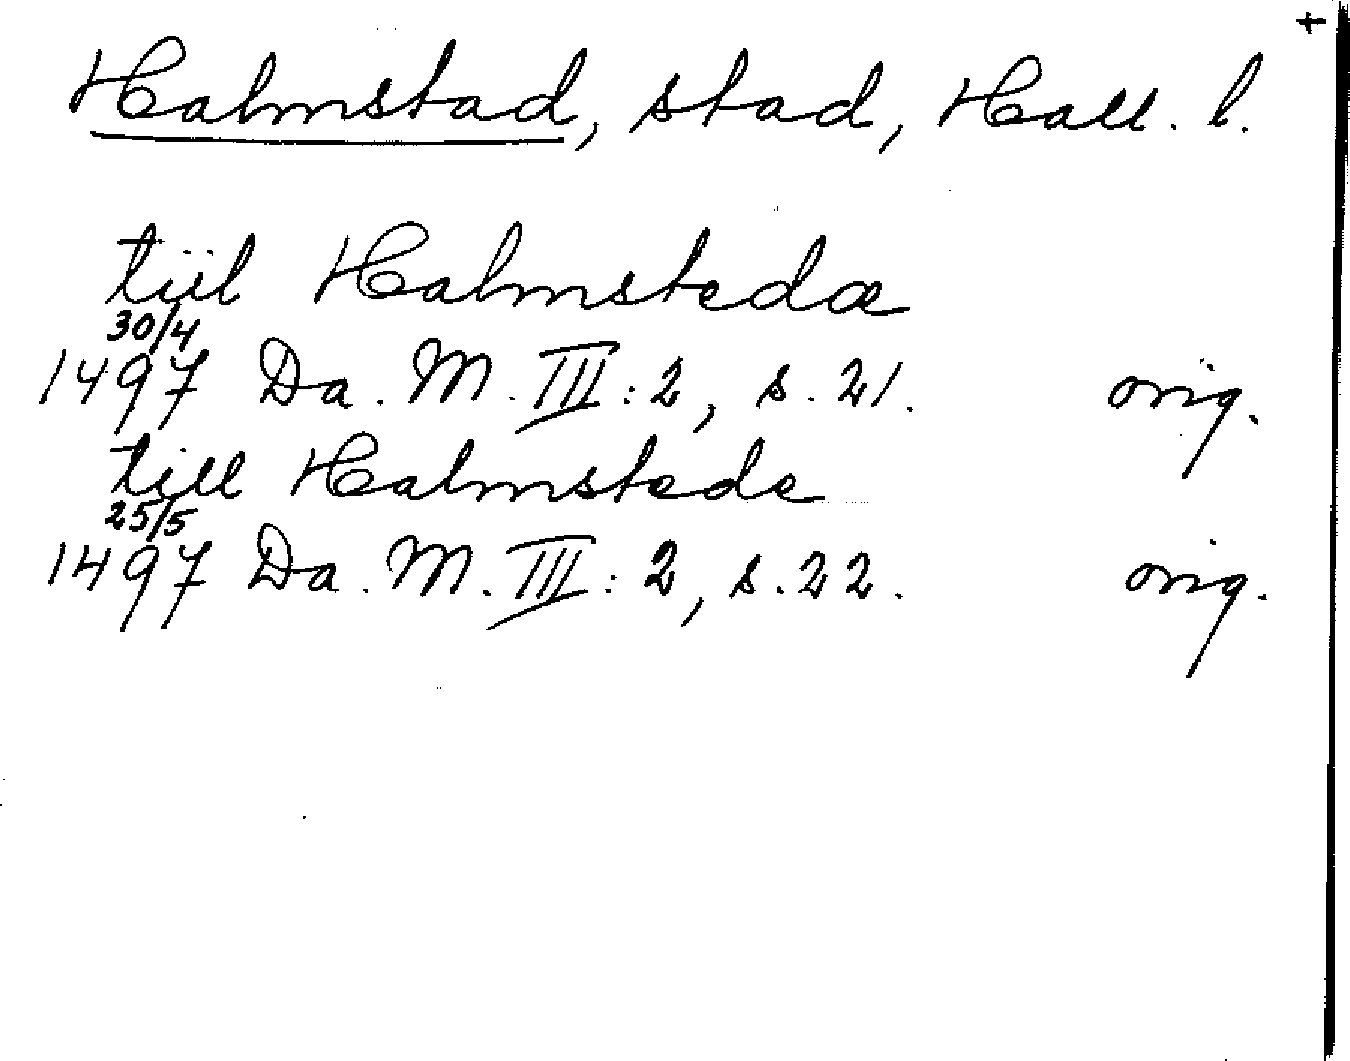 +
Halmstad, stad, Hall. l.
tiil Halmstedæ
30/4
1497 Da. M. III: 2, s. 21. orig.
till Halmstede
25/5
1497 Da. M. III: 2, s. 22. orig.